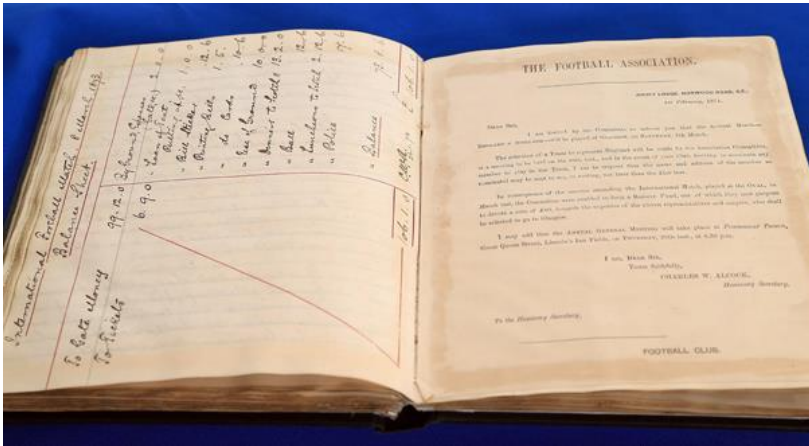 International Football Match 8 March 1873
Balance Sheet.
To Gate Money 99.12.0
To Tickets 6.9.0
106.1.0
By Ground Expenses
" Loan of Seat 2.2.0
" Bill Sticker 1.0.0
" Printing Bills 12.6
" do Cards 1.5.
" Use of Ground 10.0.0
" Dinners to hotel
" Ball 12.6
" Luncheons to hotel 2.12.6
" Police 17.6
" Balance
THE FOOTBALL ASSOCIATION.
1st February, 1874.
DEAR SIR,
I am desired by the Committee to inform you that the annual Match,
ENGLAND v. SCOTLAND will be played at GLASGOW on SATURDAY, 7th March.
The selection of a Team to represent England will be made by the Association Committee,
at a meeting to be held on the and in the event of your Club desiring to nominate any
member to play in the Team, I am to request that the name and address of the member so
nominated may be sent to me, in writing, not later than the 21st inst.
In consequence of the success attending the International Match, played at the Oval, in
March last, the Committee were enabled to form a Reserve Fund, out of which they now purpose
to devote a sum of towards the expenses of the eleven representatives and umpire, who shall
be selected to go to Glasgow.
I may add that the ANNUAL GENERAL MEETING will take place at Freemasons' Tavern,
Great Queen Street, Lincoln's Inn Fields, on THURSDAY, inst., at
I am, DEAR SIR,
Yours faithfully,
CHARLES W. ALCOCK,
Honorary Secretary.
To the Honorary Secretary,
FOOTBALL CLUB.